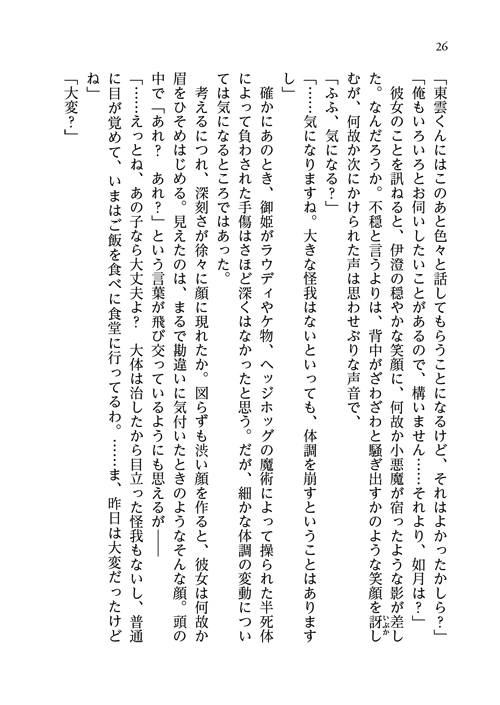 26
「東雲くんにはこのあと色々と話してもらうことになるけど、それはよかったかしら?」
「俺もいろいろとお伺いしたいことがあるので、構いません……それより、如月は?」
　彼女のことを訊ねると、伊澄の穏やかな笑顔に、何故か小悪魔が宿ったような影が差し
た。なんだろうか。不穏と言うよりは、背中がざわざわと騒ぎ出すかのような笑顔を訝し
いぶか
むが、何故か次にかけられた声は思わせぶりな声音で、
「ふふ、気になる?」
「……気になりますね。大きな怪我はないといっても、体調を崩すということはあります
し」
　確かにあのとき、御姫がラウディやケ物、ヘッジホッグの魔術によって操られた半死体
によって負わされた手傷はさほど深くはなかったと思う。だが、細かな体調の変動につい
ては気になるところではあった。
　考えるにつれ、深刻さが徐々に顔に現れたか。図らずも渋い顔を作ると、彼女は何故か
眉をひそめはじめる。見えたのは、まるで勘違いに気付いたときのようなそんな顔。頭の
中で「あれ?　あれ?」という言葉が飛び交っているようにも思えるが――
「……えっとね、あの子なら大丈夫よ?　大体は治したから目立った怪我もないし、普通
に目が覚めて、いまはご飯を食べに食堂に行ってるわ。……ま、昨日は大変だったけど
ね」
「大変?」